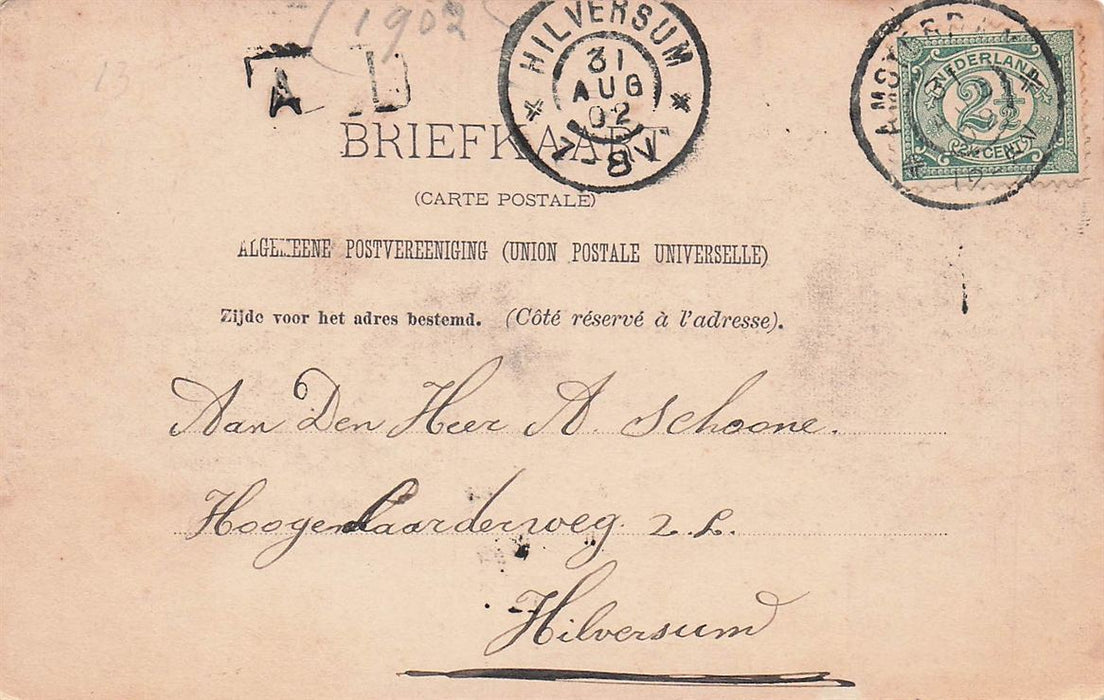 (1902)
13
A D
HILVERSUM
31
AUG
02
7-8V
AMSTERDAM
NEDERLAND
2½
2½ CENT
BRIEFKAART
(CARTE POSTALE)
ALGEMEENE POSTVEREENIGING (UNION POSTALE UNIVERSELLE)
Zijde voor het adres bestemd. (Côté réservé à l'adresse).
Aan Den Heer A. Schoone.
Hoogenlaarderweg. 2.L.
Hilversum